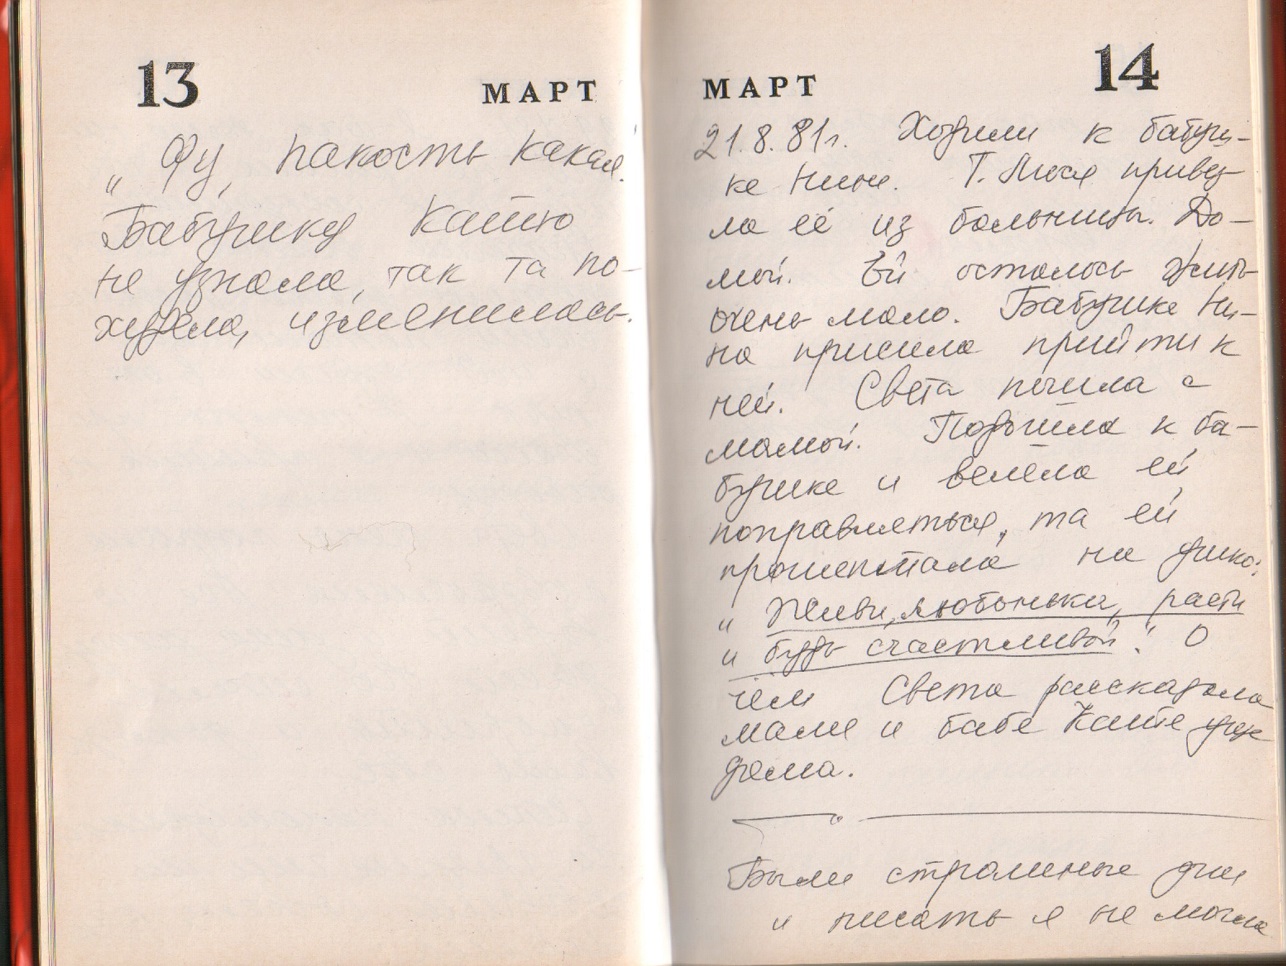 13 МАРТ
„Фу, пакость какая.
Бабушку Катю
не узнала, так та по-
худела, изменилась.
МАРТ 14
21.8.81г. Ходили к бабуш-
ке Нине. Т. Люся привез-
ла её из больницы. До-
мой. Ей осталось жить
очень мало. Бабушка Ни-
на просила прийти к
ней. Света пошла с
мамой. Подошла к ба-
бушке и велела ей
поправляться, та ей
прошептала на ушко:
„Живи, любонька, расти
и будь счастливой". О
чём Света рассказала
маме и бабе Кате уже
дома.
Были страшные дни
и писать я не могла